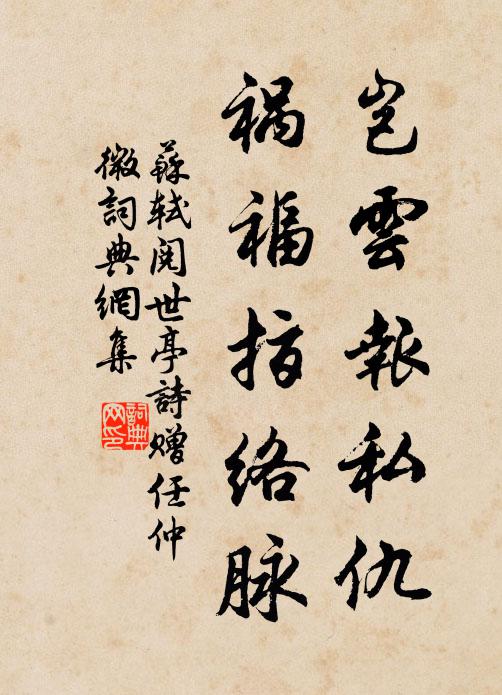 岂雲報私仇
禍福指絡脉
蘇軾閱世亭詩贈任仲
微詞典網集
詞典网印